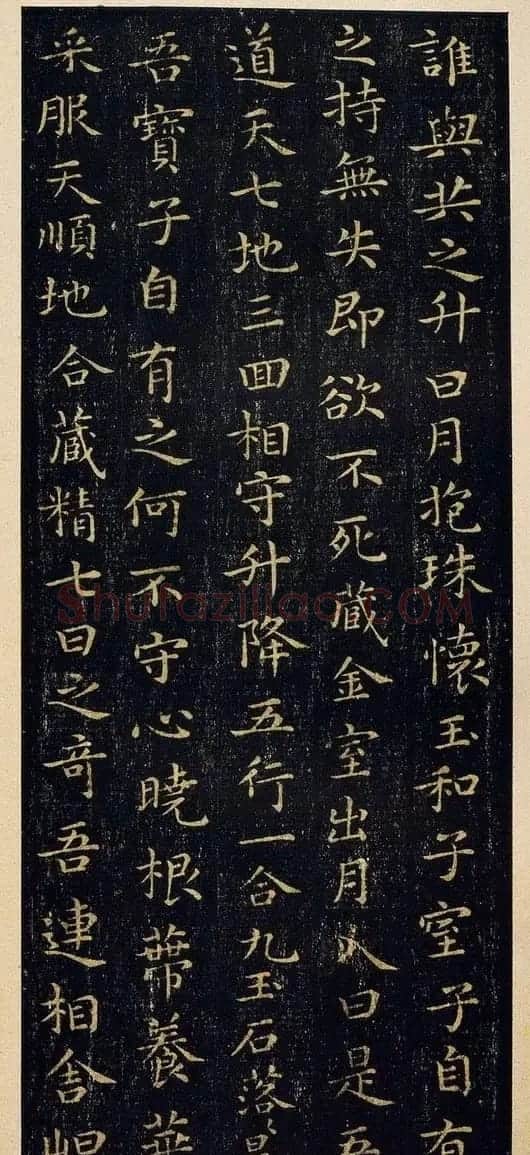 誰與共之升日月抱珠懷玉和子室子自有
之持無失即欲不死藏金室出月入日是吾
道天七地三回相守升降五行一合九玉石落落是
吾寶子自有之何不守心曉根蒂養華
采服天順地合藏精七日之奇吾連相舍
Shufaziliao.COM